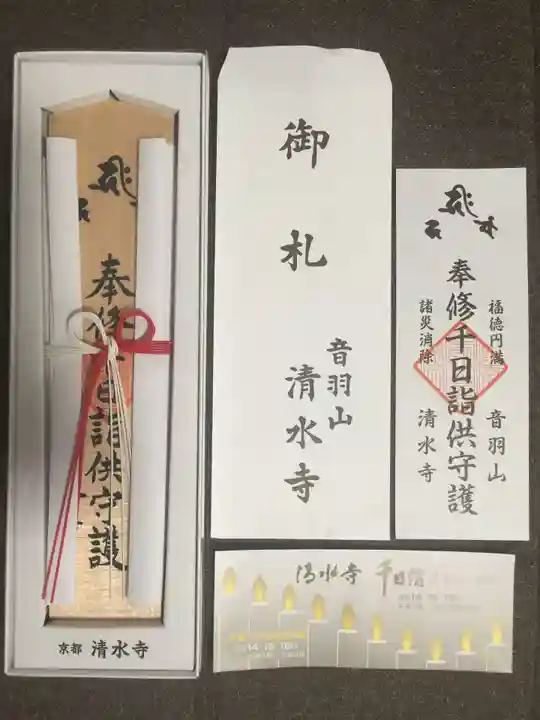 奉修千日詣供守護
京都 清水寺
御札
音羽山
清水寺
福徳円満
奉修千日詣供守護
諸災消除
音羽山
清水寺
清水寺 千日詣